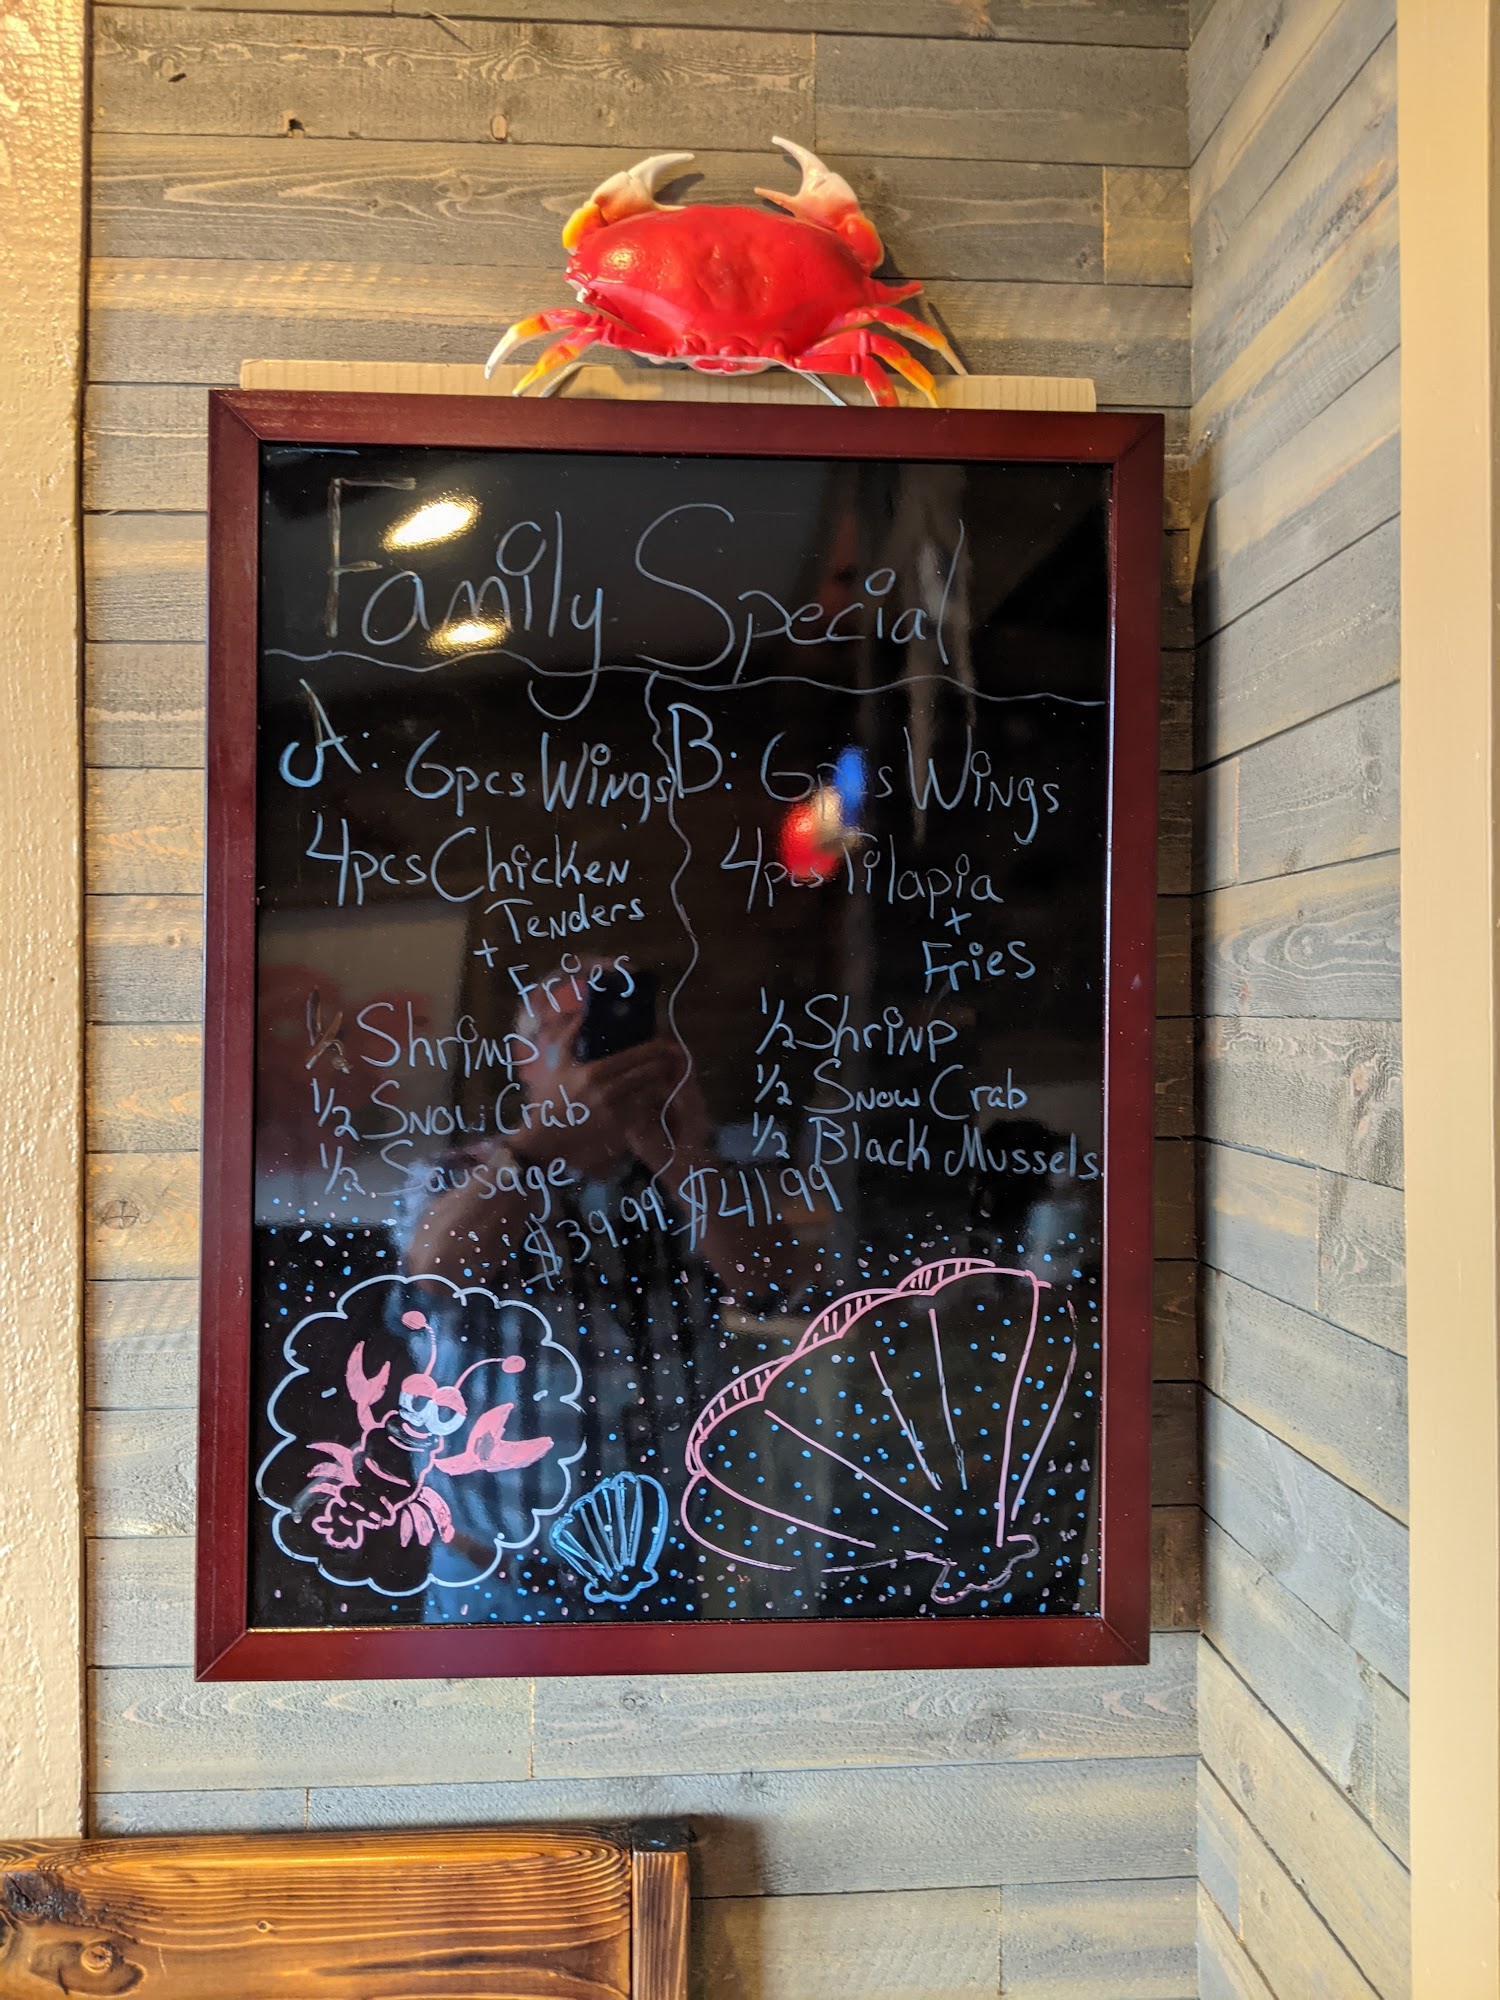 Family Special
A: 6pcs Wings
4pcs Chicken
Tenders
+
Fries
1/2 Shrimp
1/2 Snow Crab
1/2 Sausage
$39.99
B: 6pcs Wings
4pcs Tilapia
+
Fries
1/2 Shrimp
1/2 Snow Crab
1/2 Black Mussels
$41.99